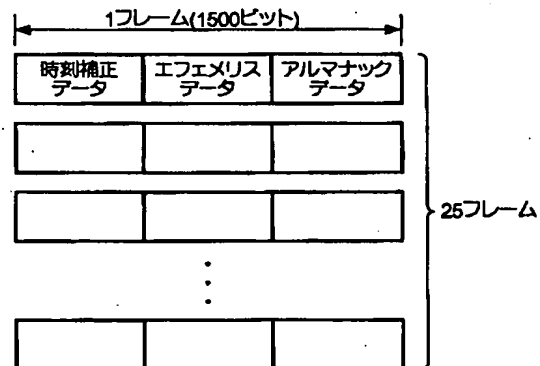 1フレーム(1500ビット)
時刻補正
データ
エフェメリス
データ
アルマナック
データ
25フレーム